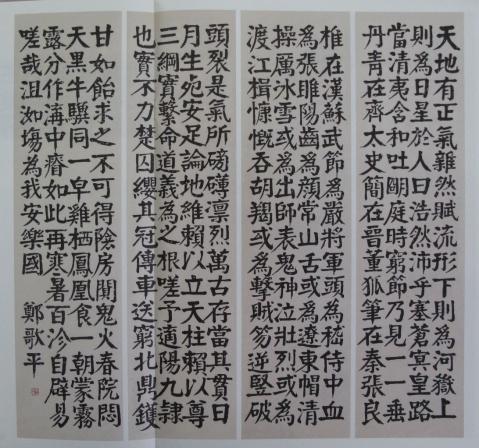 天地有正氣雜然賦流形下則為河嶽上
則為日星於人曰浩然沛乎塞蒼冥皇路
當清夷含和吐明庭時窮節乃見一一垂
丹青在齊太史簡在晉董狐筆在秦張良
椎在漢蘇武節為嚴將軍頭為嵇侍中血
為張睢陽齒為顏常山舌或為遼東帽清
操厲冰雪或為出師表鬼神泣壯烈或為
渡江楫慷慨吞胡羯或為擊賊笏逆豎破
頭裂是氣所磅礴凛烈萬古存當其貫日
月生死安足論地維賴以立天柱賴以尊
三綱實繫命道義為之根嗟予遘陽九隸
也實不力楚囚纓其冠傳車送窮北鼎鑊
甘如飴求之不可得陰房闃鬼火春院悶
天黑牛驥同一皁雞栖鳳凰食一朝蒙霧
露分作溝中瘠如此再寒暑百沴自辟易
嗟哉沮洳場為我安樂國 鄭歌平